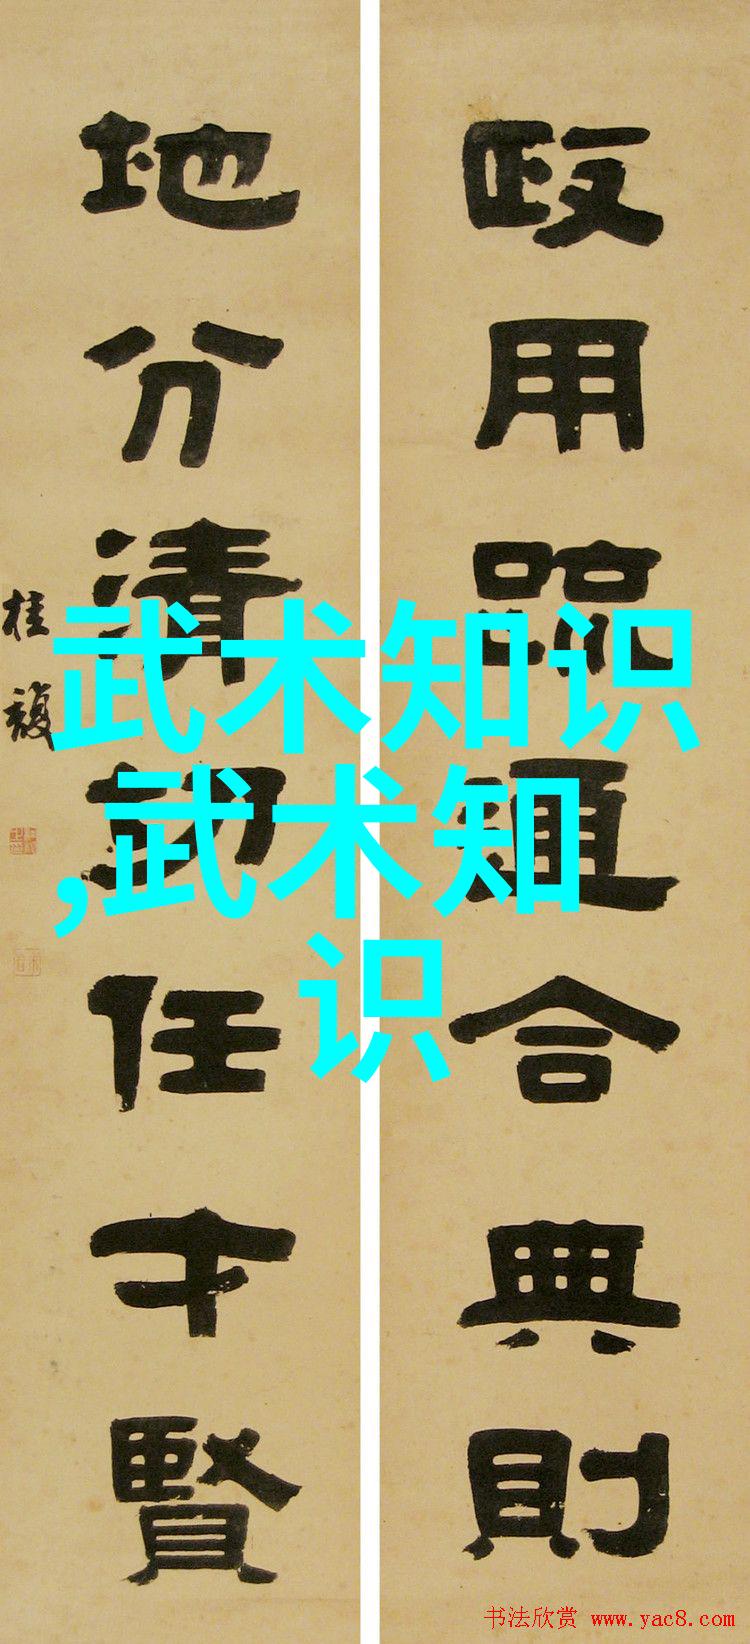 政用疏通合典則
地分清切任才賢
桂馥
武术知识
,武术知
识
书法欣赏 www.yac8.com